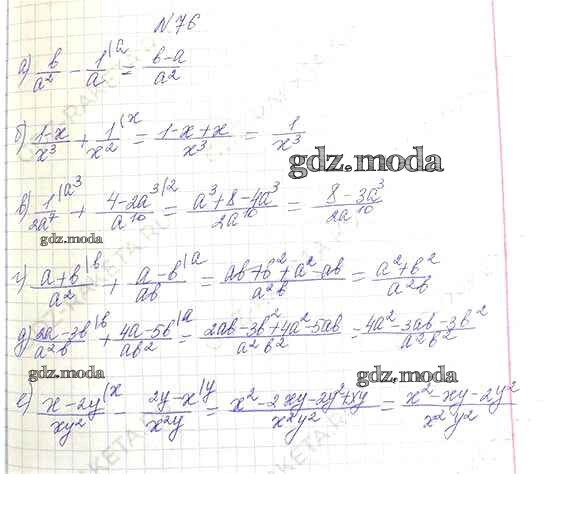 N 76
а) b/a² - 1/a |a = b-a/a²
б) 1-x/x³ + 1/x² |x = 1-x+x/x³ = 1/x³
gdz.moda
в) 1/2a⁷ |a³ + 4-2a³/a¹⁰ |2 = a³+8-4a³/2a¹⁰ = 8-3a³/2a¹⁰
gdz.moda
г) a+b/a² |b + a-b/ab |a = ab+b²+a²-ab/a²b = a²+b²/a²b
д) 2a-3b/a²b |b + 4a-5b/ab² |a = 2ab-3b²+4a²-5ab/a²b² = 4a²-3ab-3b²/a²b²
gdz.moda gdz.moda
е) x-2y/xy² |x - 2y-x/x²y |y = x²-2xy-2y²+xy/x²y² = x²-xy-2y²/x²y²